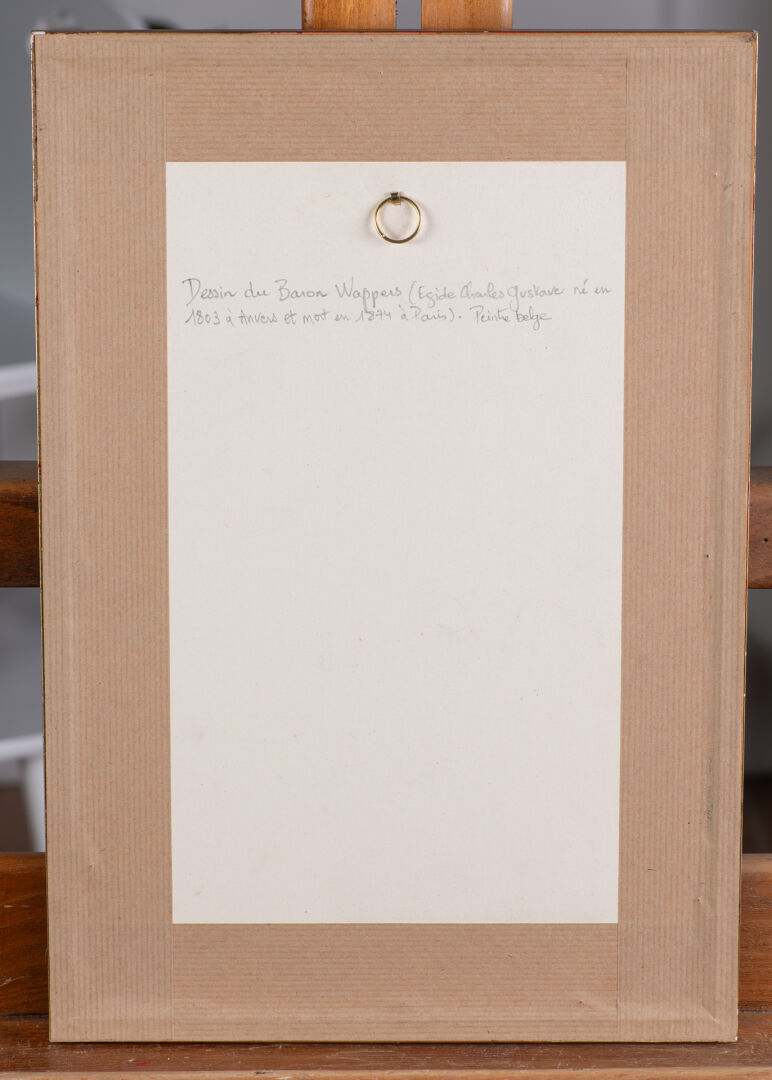 Dessin du Baron Wappers (Egide Charles Gustave né en
1803 à Anvers et mort en 1874 à Paris). Peintre belge